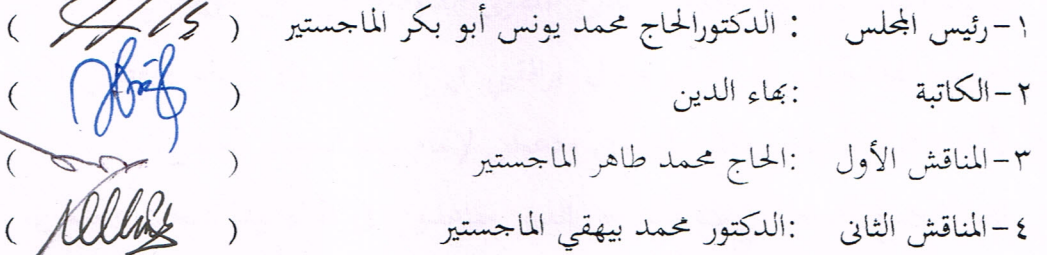 ١-رئيس المجلس : الدكتورالحاج محمد يونس أبو بكر الماجستير ( )
٢-الكاتبة :بهاء الدين ( )
٣-المناقش الأول :الحاج محمد طاهر الماجستير ( )
٤-المناقش الثانى :الدكتور محمد بيهقي الماجستير ( )